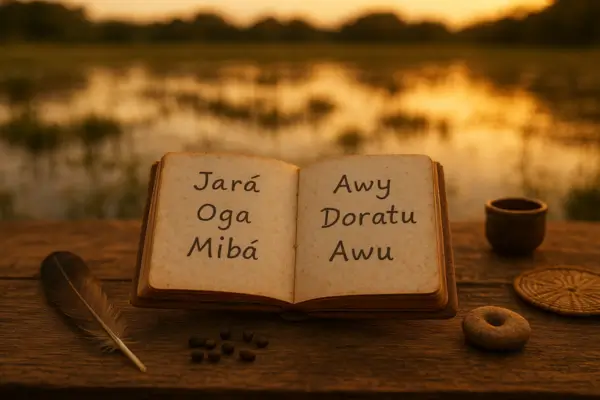 Jará
Oga
Mibá
Awy
Doratu
Awu